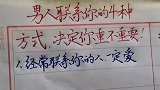 男人联系你的4种
方式,决定你重不重要!
1.经常联系你的人一定爱